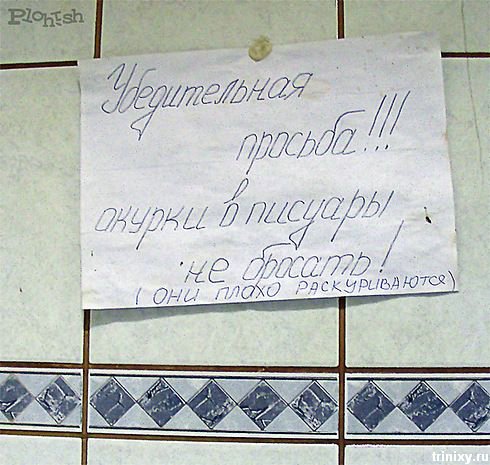 Plohish
Убедительная
просьба!!!
окурки в писуары
не бросать!
(ОНИ ПЛОХО РАСКУРИВАЮТСЯ)
trinixy.ru